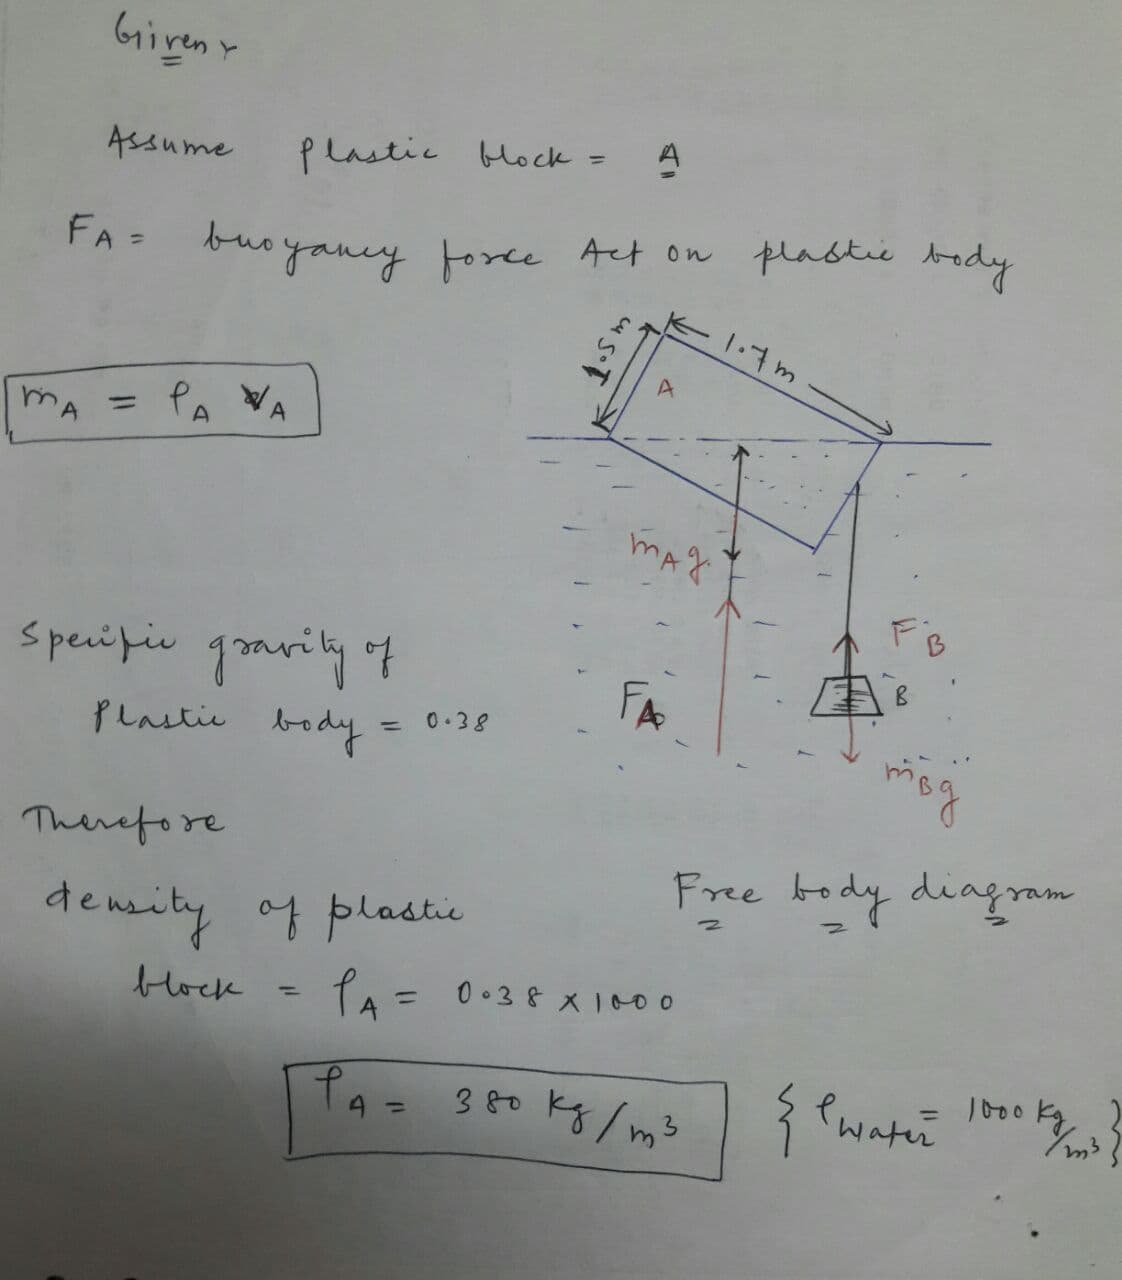 Given
Assume plastic block = A
FA = buoyancy force Act on plastic body
1.5m
1.7m
A
mA = ρA VA
mAg
Specific gravity of
Plastic body = 0.38
FA
FB
B
mBg
Therefore
density of plastic
block = ρA = 0.38 x 1000
Free body diagram
ρA = 380 kg/m³ {ρwater = 1000 kg/m³}